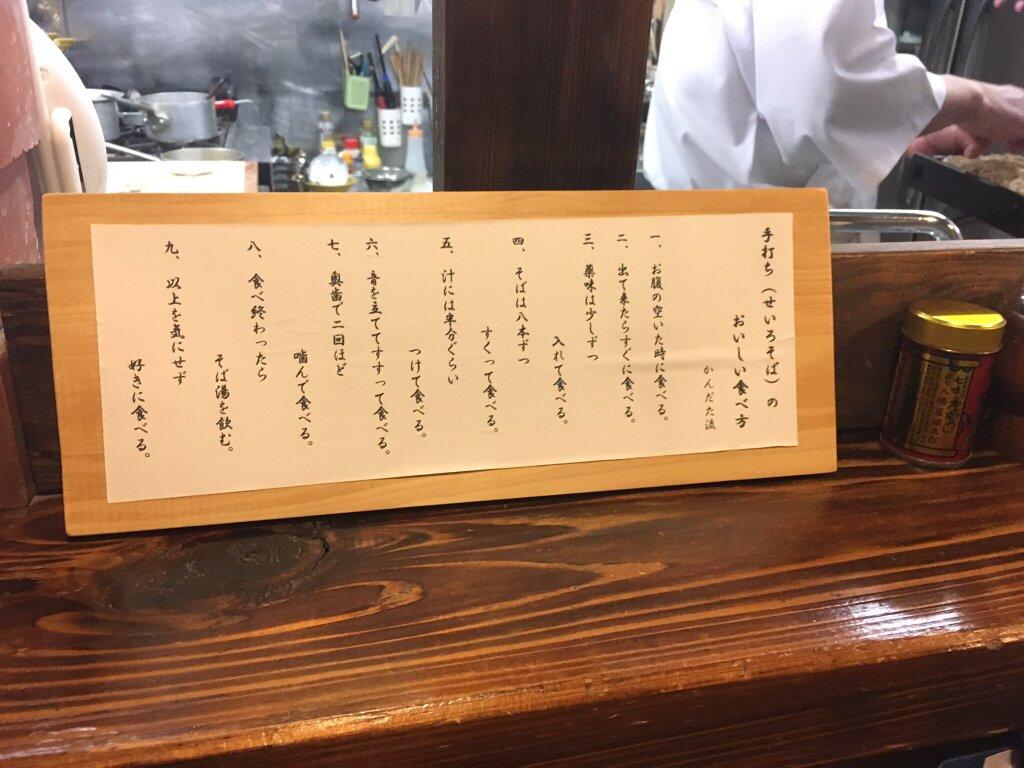 手打ち(せいろそば)の
おいしい食べ方
かんだた流
一、お腹の空いた時に食べる。
二、出て来たらすぐに食べる。
三、薬味は少しずつ
入れて食べる。
四、そばは八本ずつ
すくって食べる。
五、汁には半分ぐらい
つけて食べる。
六、音を立ててすすって食べる。
七、奥歯で二回ほど
噛んで食べる。
八、食べ終わったら
そば湯を飲む。
九、以上を気にせず
好きに食べる。
八幡屋礒五郎